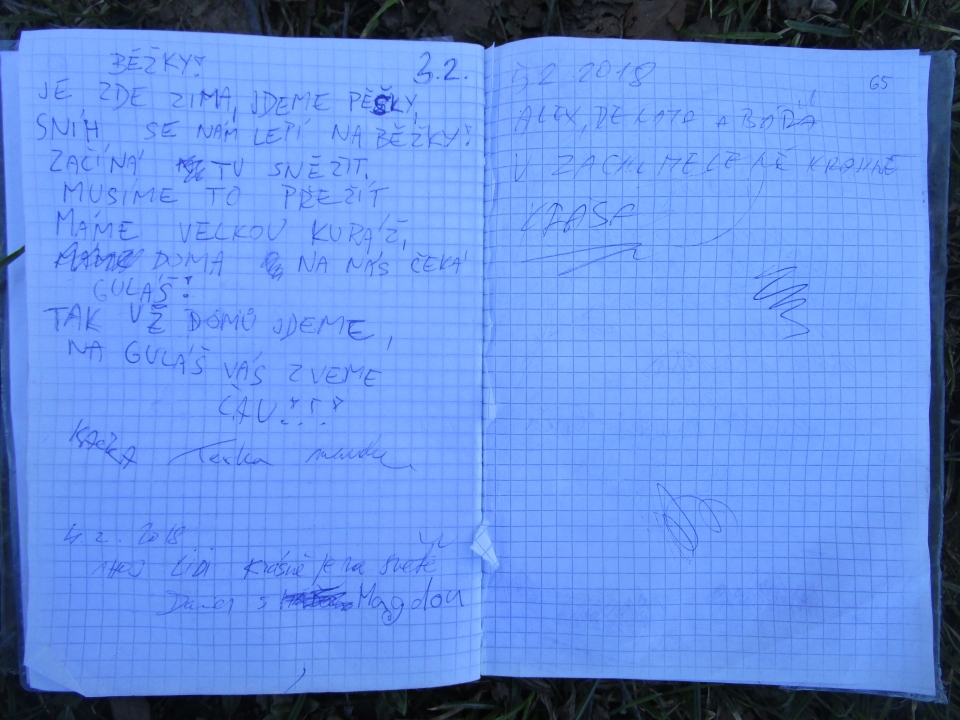 BĚŽKY! 3.2.
JE ZDE ZIMA, JDEME PĚŠKY,
SNÍH SE NÁM LEPÍ NA BĚŽKY!
ZAČÍNÁ TU SNĚŽIT.
MUSÍME TO PŘEŽÍT
MÁME VELKOU KURÁŽ,
DOMA NA NÁS ČEKÁ
GULÁŠ!
TAK UŽ DOMŮ JDEME,
NA GULÁŠ VÁS ZVEME
ČAU!!!
KAČKA Terka
4.2. 2018
Ahoj lidi Krásně je na světě
s Magdou
3.2 2018 65
ALEX, A BÁRA
V
KRÁSA